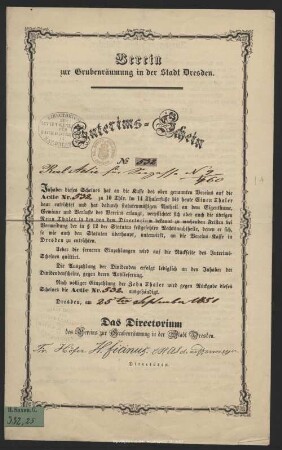 Verein
zur Grubenräumung in der Stadt Dresden.
Interims-Schein
№ 532
Inhaber dieses Scheines hat an die Kasse des oben genannten Vereins auf die
Actie Nr. 532 zu 10 Thlr. im 14 Thalerfuße die heute Einen Thaler
baar entrichtet und hat dadurch statutenmäßigen Antheil an dem Eigenthume,
Gewinn und Verluste des Vereins erlangt, verpflichtet sich aber auch die übrigen
Neun Thaler in den von dem Directorium bekannt zu machenden Fristen bei
Vermeidung der in § 13 der Statuten festgesetzten Rechtsnachtheile, deren er
sich nach den Statuten überhaupt unterwirft, an die Vereins-Kasse in
Dresden zu entrichten.
Ueber die ferneren Einzahlungen wird auf der Rückseite des Interims-
Scheines quittirt.
Die Auszahlung der Dividenden erfolgt lediglich an den Inhaber der
Dividendenscheine, gegen deren Auslieferung.
Nach völliger Einzahlung der Zehn Thaler wird gegen Rückgabe dieses
Scheines die Actie Nr. 532 ausgehändigt.
Dresden, am 25ten September 1851
Das Directorium
des Vereins zur Grubenräumung in der Stadt Dresden.
Directoren.
H. Saxon. G.